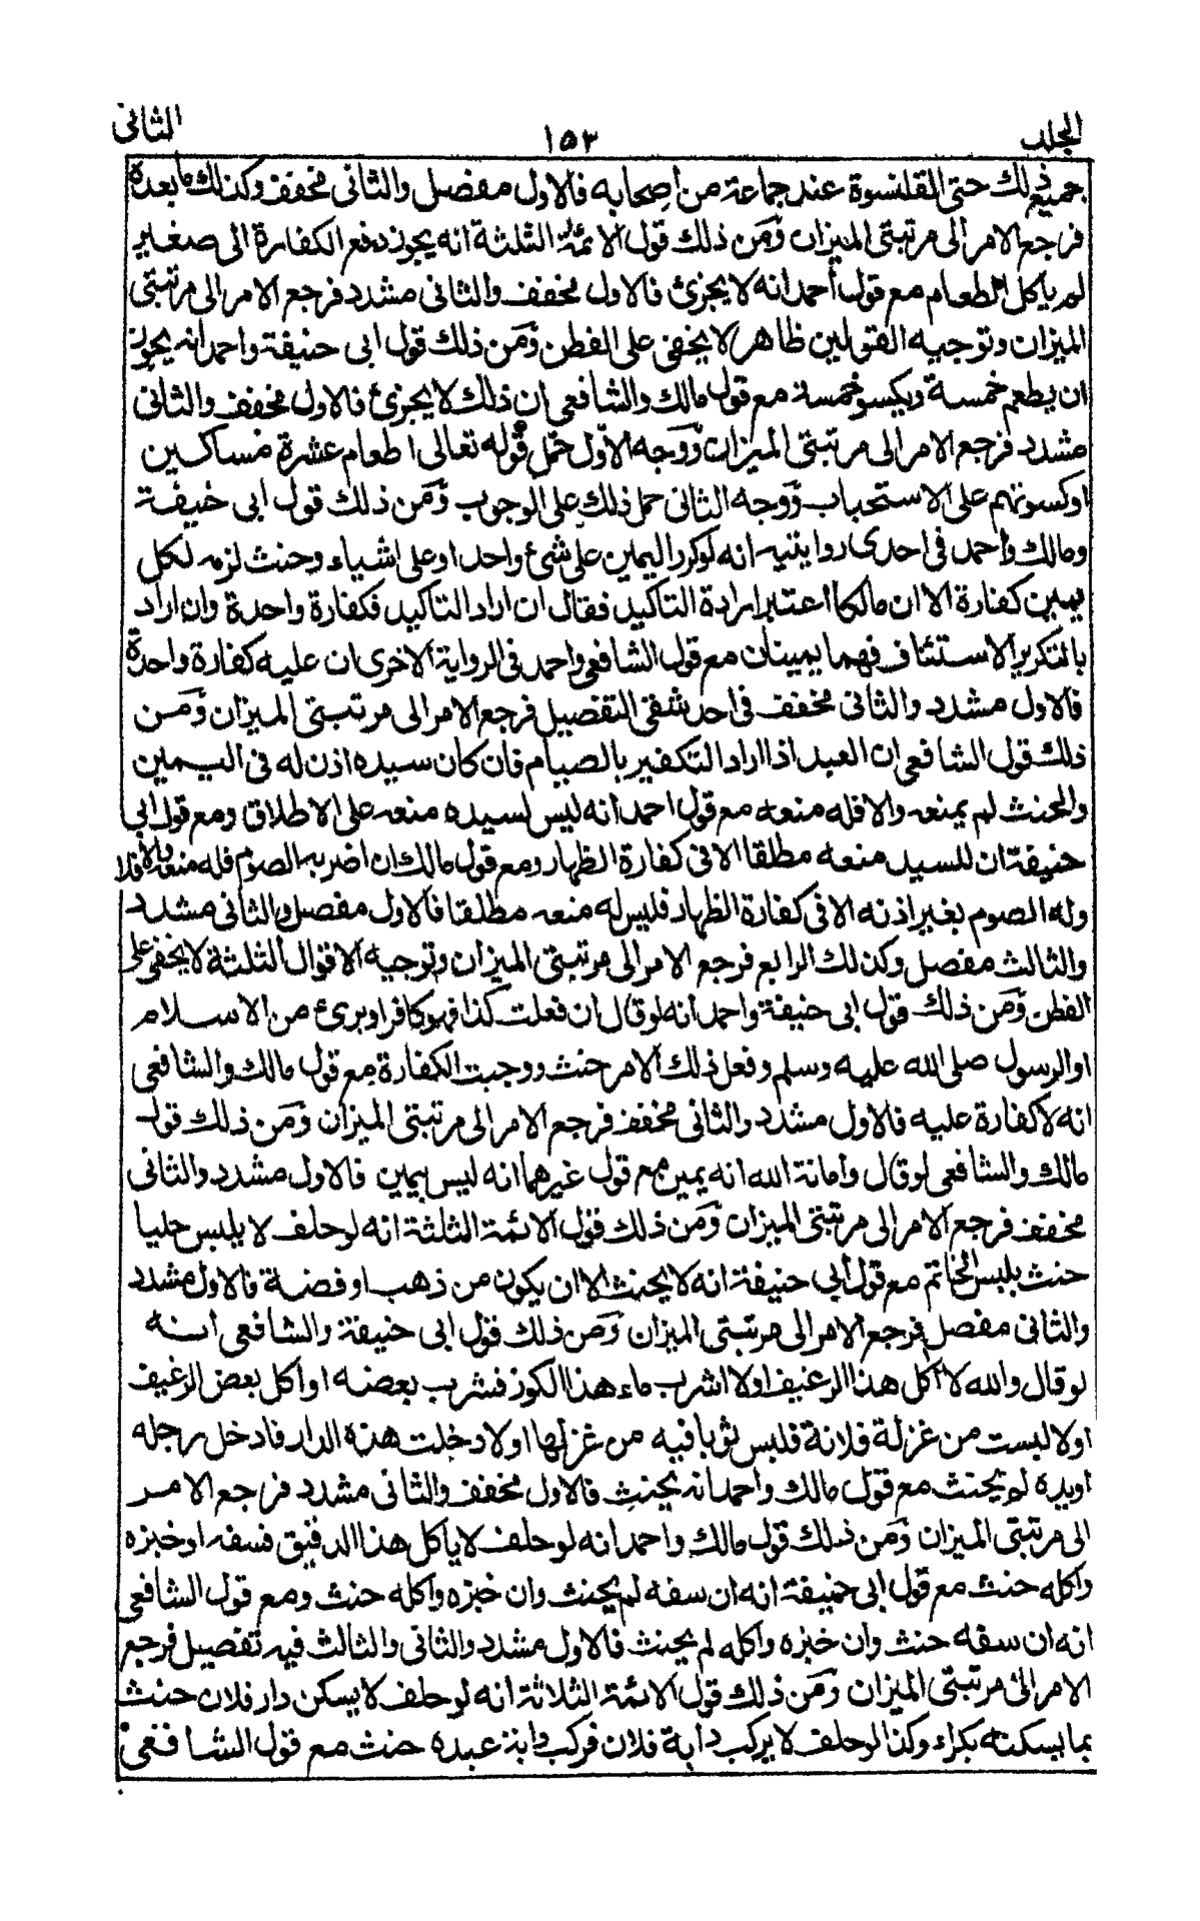 المجلد ١٥٣ الثانى
جميع ذلك حتى القلنسوة عند جماعة من اصحابه فالاول مفصل والثانى مخفف وكذلك ما بعده
فرجع الامر الى مرتبتى الميزان ومن ذلك قول الائمة الثلثة انه يجوز دفع الكفارة الى صغير
لم ياكل الطعام مع قول أحمد انه لا يجزئ فالاول مخفف والثانى مشدد فرجع الامر الى مرتبتى
الميزان وتوجيه القولين ظاهر لا يخفى على الفطن ومن ذلك قول ابى حنيفة واحمد انه يجوز
ان يطعم خمسة ويكسو خمسة مع قول مالك والشافعى ان ذلك لا يجزئ فالاول مخفف والثانى
مشدد فرجع الامر الى مرتبتى الميزان ووجه الاول حمل قوله تعالى اطعام عشرة مساكين
اوكسوتهم على الاستحباب ووجه الثانى حمل ذلك على الوجوب ومن ذلك قول ابى حنيفة
ومالك واحمد فى احدى روايتيه انه لوكرر اليمين على شئ واحد او على اشياء وحنث لزمه لكل
يمين كفارة الا ان مالكا اعتبر ارادة التاكيد فقال ان اراد التاكيد فكفارة واحدة وان اراد
بالتكرير الاستئناف فهما يمينان مع قول الشافعى واحمد فى الرواية الاخرى ان عليه كفارة واحدة
فالاول مشدد والثانى مخفف فى احد شقى التفصيل فرجع الامر الى مرتبتى الميزان ومن
ذلك قول الشافعى ان العبد اذا اراد التكفير بالصيام فان كان سيده اذن له فى اليمين
والحنث لم يمنعه والا فله منعه مع قول احمد انه ليس لسيده منعه على الاطلاق ومع قول ابى
حنيفة ان للسيد منعه مطلقا الا فى كفارة الظهار ومع قول مالك ان اضر به الصوم فله منعه والا فلا
وله الصوم بغير اذنه الا فى كفارة الظهار فليس له منعه مطلقا فالاول مفصل والثانى مشدد
والثالث مفصل وكذلك الرابع فرجع الامر الى مرتبتى الميزان وتوجيه الاقوال الثلثة لا يخفى على
الفطن ومن ذلك قول ابى حنيفة واحمد انه لو قال ان فعلت كذا فهو كافر او برئ من الاسلام
او الرسول صلى الله عليه وسلم وفعل ذلك الامر حنث ووجبت الكفارة مع قول مالك والشافعى
انه لا كفارة عليه فالاول مشدد والثانى مخفف فرجع الامر الى مرتبتى الميزان ومن ذلك قول
مالك والشافعى لو قال وامانة الله انه يمين مع قول غيرهما انه ليس بيمين فالاول مشدد والثانى
مخفف فرجع الامر الى مرتبتى الميزان ومن ذلك قول الائمة الثلثة انه لو حلف لا يلبس حليا
حنث بلبس الخاتم مع قول أبى حنيفة انه لا يحنث الا ان يكون من ذهب او فضة فالاول مشدد
والثانى مفصل فرجع الامر الى مرتبتى الميزان ومن ذلك قول ابى حنيفة والشافعى انه
لو قال والله لا آكل هذا الرغيف اولا اشرب ماء هذا الكوز فشرب بعضه او اكل بعض الرغيف
اولا لبست من غزلة فلانة فلبس ثوبا فيه من غزلها اولا دخلت هذه الدار فادخل رجله
اويده لم يحنث مع قول مالك واحمد انه يحنث فالاول مخفف والثانى مشدد فرجع الامر
الى مرتبتى الميزان ومن ذلك قول مالك واحمد انه لو حلف لا ياكل هذا الدقيق فسفه او خبزه
واكله حنث مع قول ابى حنيفة انه ان سفه لم يحنث وان خبزه واكله حنث ومع قول الشافعى
انه ان سفه حنث وان خبزه واكله لم يحنث فالاول مشدد والثانى والثالث فيه تفصيل فرجع
الامر الى مرتبتى الميزان ومن ذلك قول الائمة الثلاثة انه لو حلف لا يسكن دار فلان حنث
بما يسكنه بكراء وكذا لو حلف لا يركب دابة فلان فركب دابة عبده حنث مع قول الشافعى